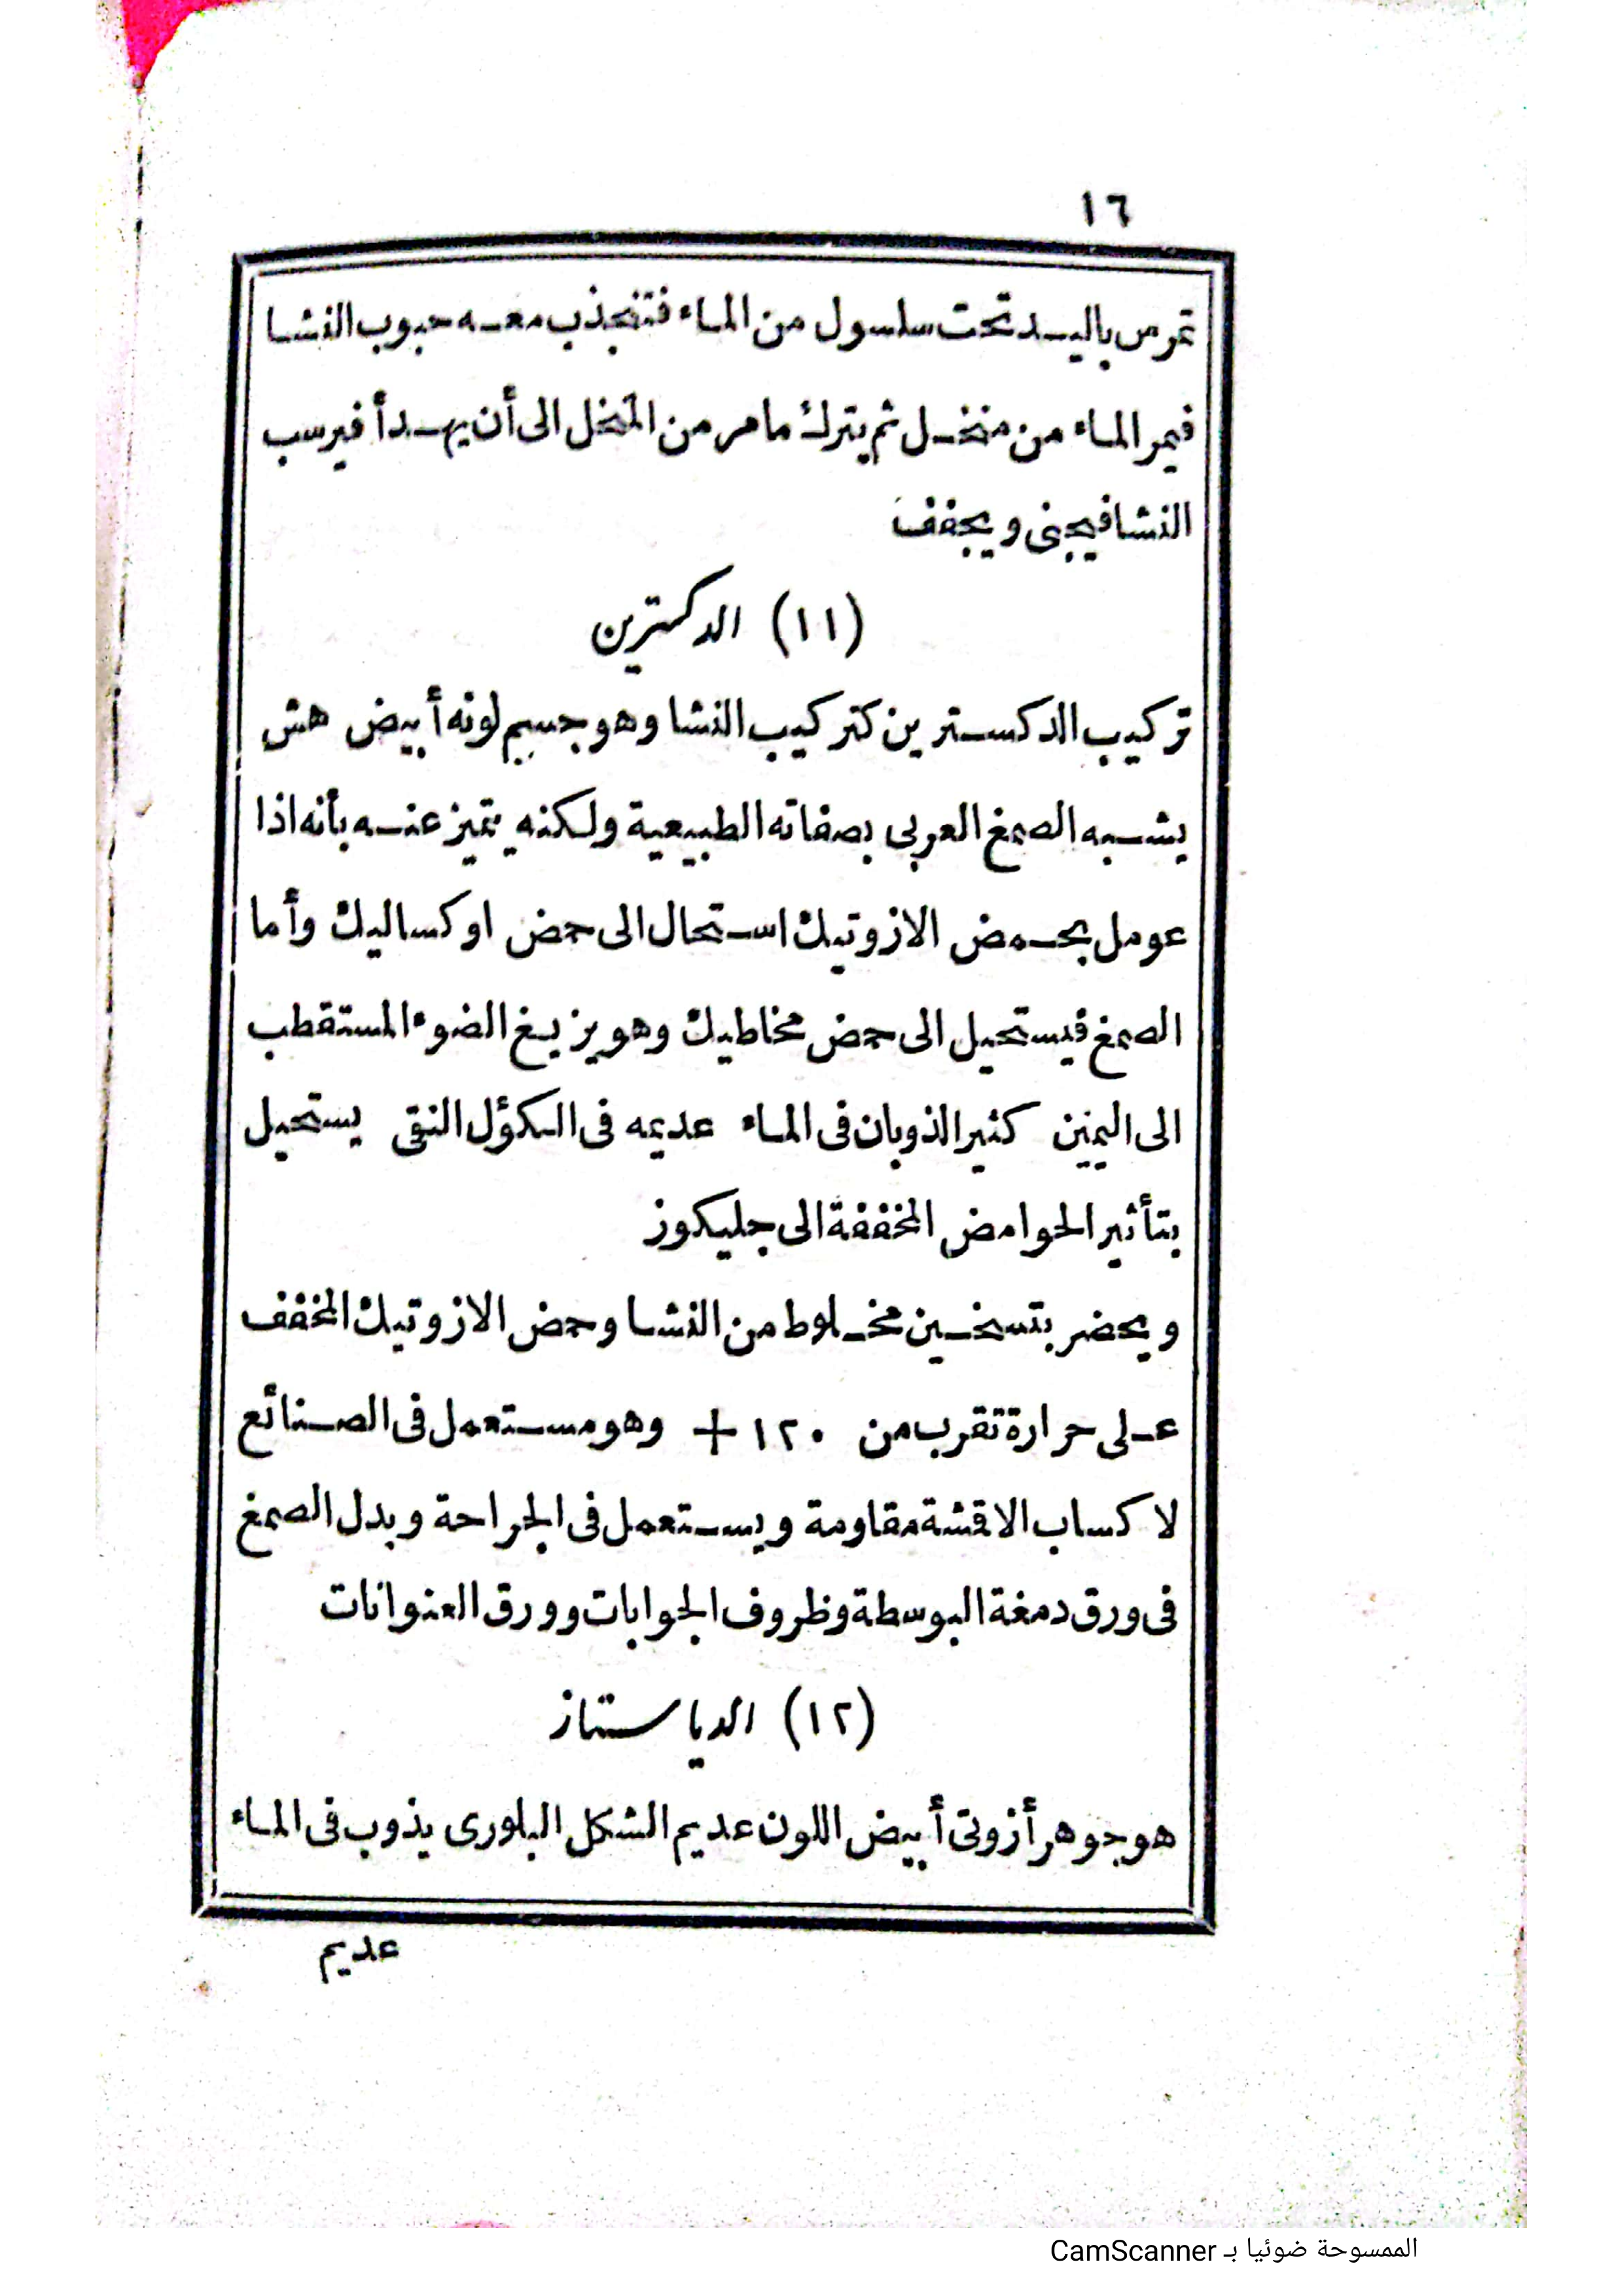 ١٦
تمرس باليد تحت سلسول من الماء فتنجذب معه حبوب النشا
فيمر الماء من منخل ثم يترك ما مر من المنخل الى أن يهدأ فيرسب
النشا فيجنى ويجفف
(١١) الدكسترين
تركيب الدكسترين كتركيب النشا وهو جسم لونه أبيض هش
يشبه الصمغ العربى بصفاته الطبيعية ولكنه يتميز عنه بأنه اذا
عومل بحمض الازوتيك استحال الى حمض اوكساليك وأما
الصمغ فيستحيل الى حمض مخاطيك وهو يزيغ الضوء المستقطب
الى اليمين كثير الذوبان فى الماء عديمه فى الكؤل النقى يستحيل
بتأثير الحوامض المخففة الى جليكوز
ويحضر بتسخين مخلوط من النشا وحمض الازوتيك المخفف
على حرارة تقرب من ١٢٠ + وهو مستعمل فى الصنائع
لاكساب الاقشة مقاومة ويستعمل فى الجراحة وبدل الصمغ
فى ورق دمغة البوسطة وظروف الجوابات وورق العنوانات
(١٢) الدياستاز
هو جوهر أزوتى أبيض اللون عديم الشكل البلورى يذوب فى الماء
عديم
الممسوحة ضوئيا بـ CamScanner